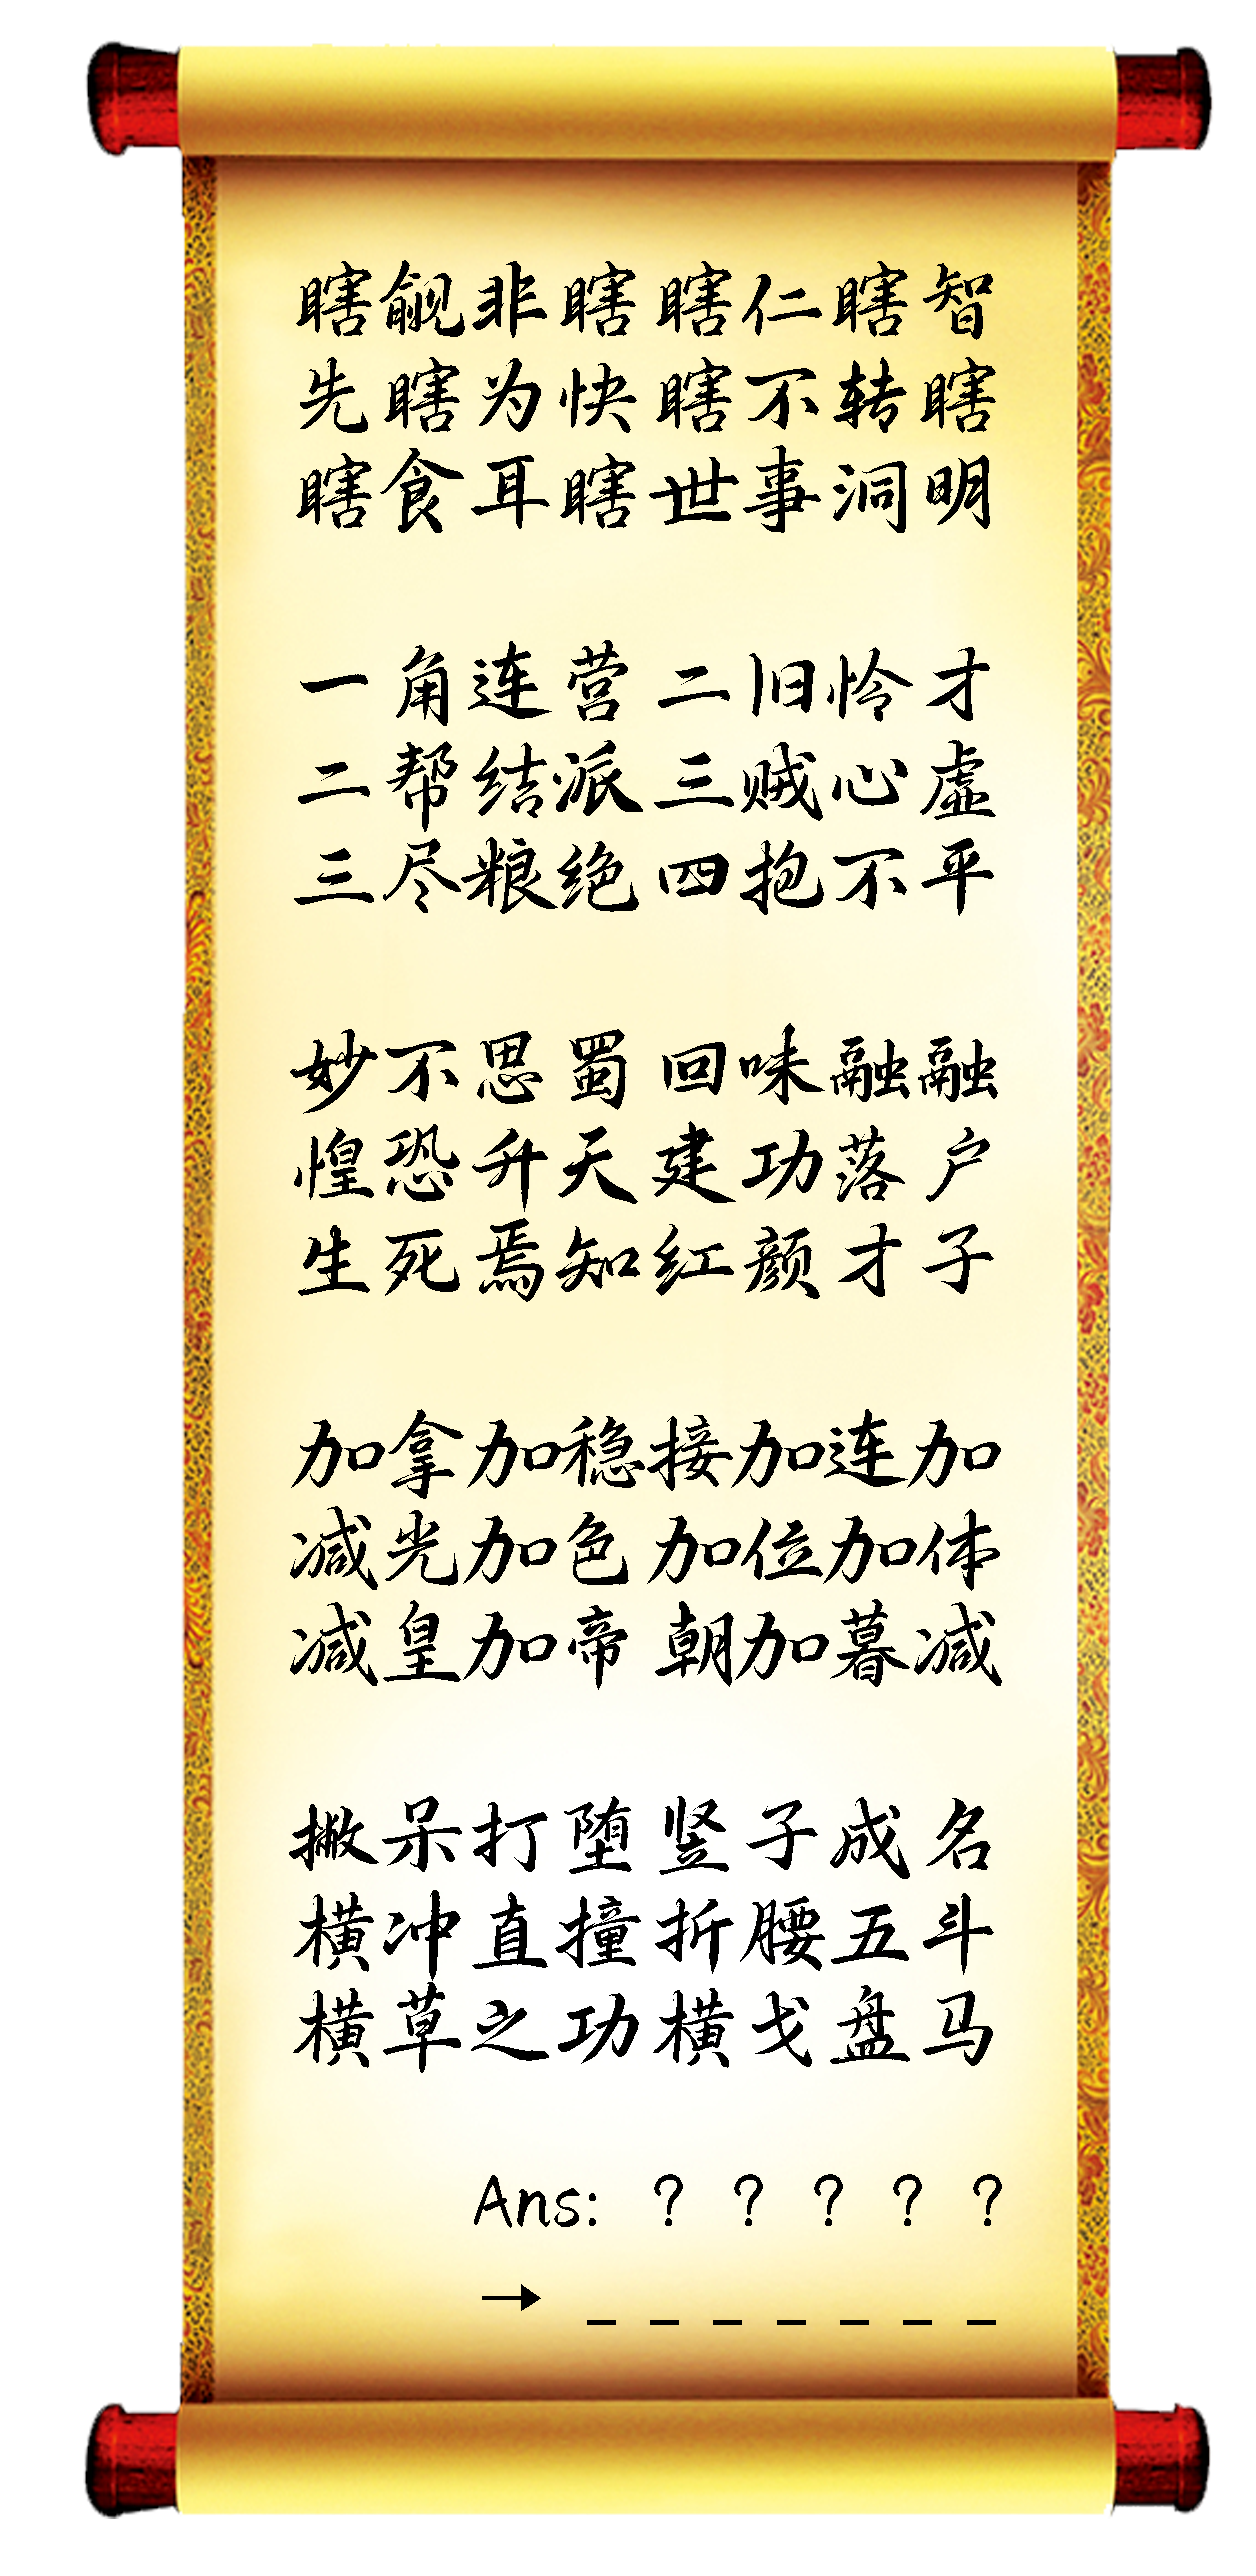 瞎觎非瞎 瞎仁瞎智
先瞎为快 瞎不转瞎
瞎食耳瞎 世事洞明
一角连营 二旧怜才
二帮结派 三贼心虚
三尽粮绝 四抱不平
妙不思蜀 回味融融
惶恐升天 建功落户
生死焉知 红颜才子
加拿加稳 接加连加
减光加色 加位加体
减皇加帝 朝加暮减
撇呆打堕 竖子成名
横冲直撞 折腰五斗
横草之功 横戈盘马
Ans: ? ? ? ? ?
→ _ _ _ _ _ _ _